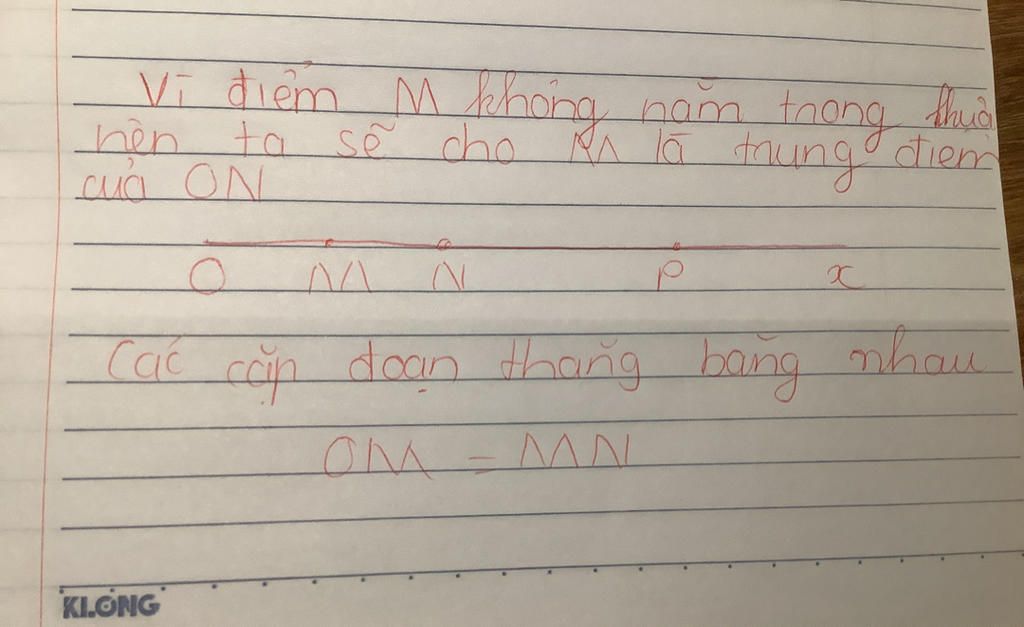 Vì điểm M không nằm trong thuộ
nên ta sẽ cho M là trung điểm
của ON
O M N P x
Các cặp đoạn thẳng bằng nhau
OM = MN
KLONG